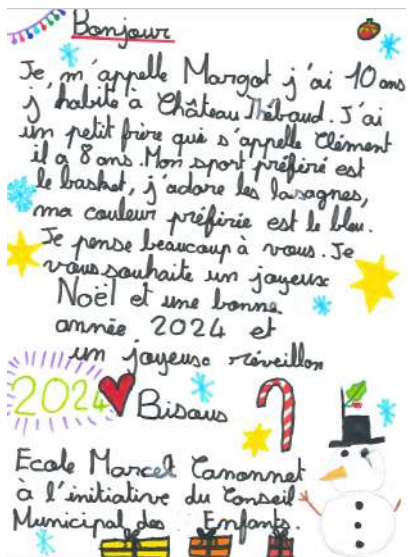 Bonjour
Je m'appelle Margot j'ai 10 ans
j'habite à Château Thébaud. J'ai
un petit frère qui s'appelle Clément
il a 8 ans. Mon sport préféré est
le basket, j'adore les lasagnes,
ma couleur préférée est le bleu.
Je pense beaucoup à vous. Je
vous souhaite un joyeux
Noël et une bonne
année 2024 et
un joyeuse réveillon
2024 Bisous
Ecole Marcel Canonnet
à l'initiative du Conseil
Municipal des Enfants.